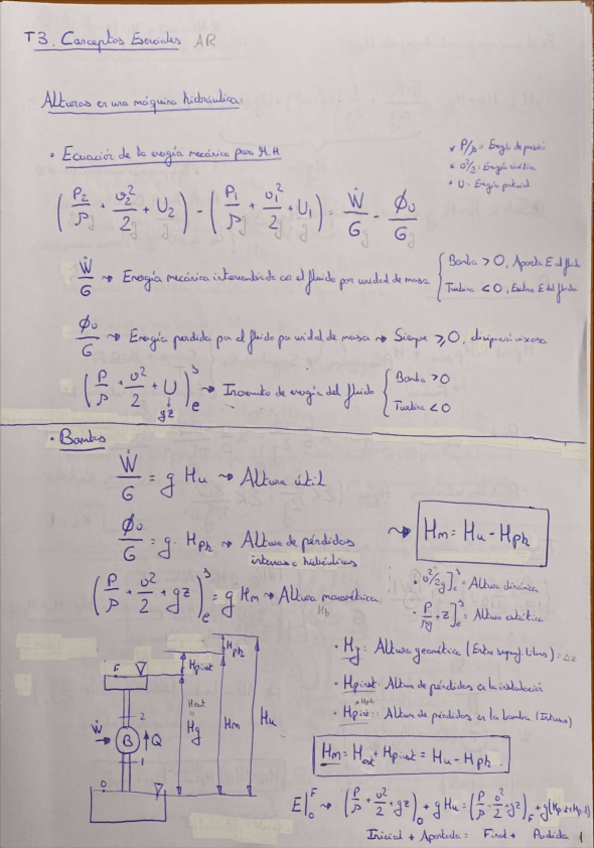 T3. Conceptos Esenciales AR
Alturas en una máquina hidráulica:
• Ecuación de la energía mecánica para M.H
* P/ρ = Energía de presión
* v²/2 = Energía cinética
* U = Energía potencial
(P₂/ρg + v₂²/2g + U₂/g) - (P₁/ρg + v₁²/2g + U₁/g) = Ẇ/Gg - Φv/Gg
Ẇ/G ⇝ Energía mecánica intercambiada con el fluido por unidad de masa { Bomba > 0, Aporta E al fluido
Turbina < 0, Extrae E del fluido
Φv/G ⇝ Energía perdida por el fluido por unidad de masa ⇝ Siempre ≥ 0, disipación viscosa
(P/ρ + v²/2 + U)ₑˢ ⇝ Incremento de energía del fluido { Bomba > 0
Turbina < 0
↓
gz
• Bombas
Ẇ/G = g Hu ⇝ Altura útil
Φv/G = g. Hph ⇝ Altura de pérdidas
internas o hidráulicas
⇝ Hm = Hu - Hph
(P/ρ + v²/2 + gz)ₑˢ = g Hm ⇝ Altura manométrica
Hb
• v²/2g]ₑˢ = Altura dinámica
• P/ρg + z]ₑˢ = Altura estática
• Hg: Altura geométrica (Entre superf. libres) = Δz
• Hpinst: Altura de pérdidas en la instalación
• Hph
• Hpint: Altura de pérdidas en la bomba (Internas)
F
Hpinst
Hph
Hest
=
Hg
Hm
Hu
2
Ẇ
B
Q
1
0
Hm = Hest + Hpinst = Hu - Hph
E]₀ᶠ ⇝ (P/ρ + v²/2 + gz)₀ + g Hu = (P/ρ + v²/2 + gz)F + g(
Inicial + Aportada = Final + Perdida
1